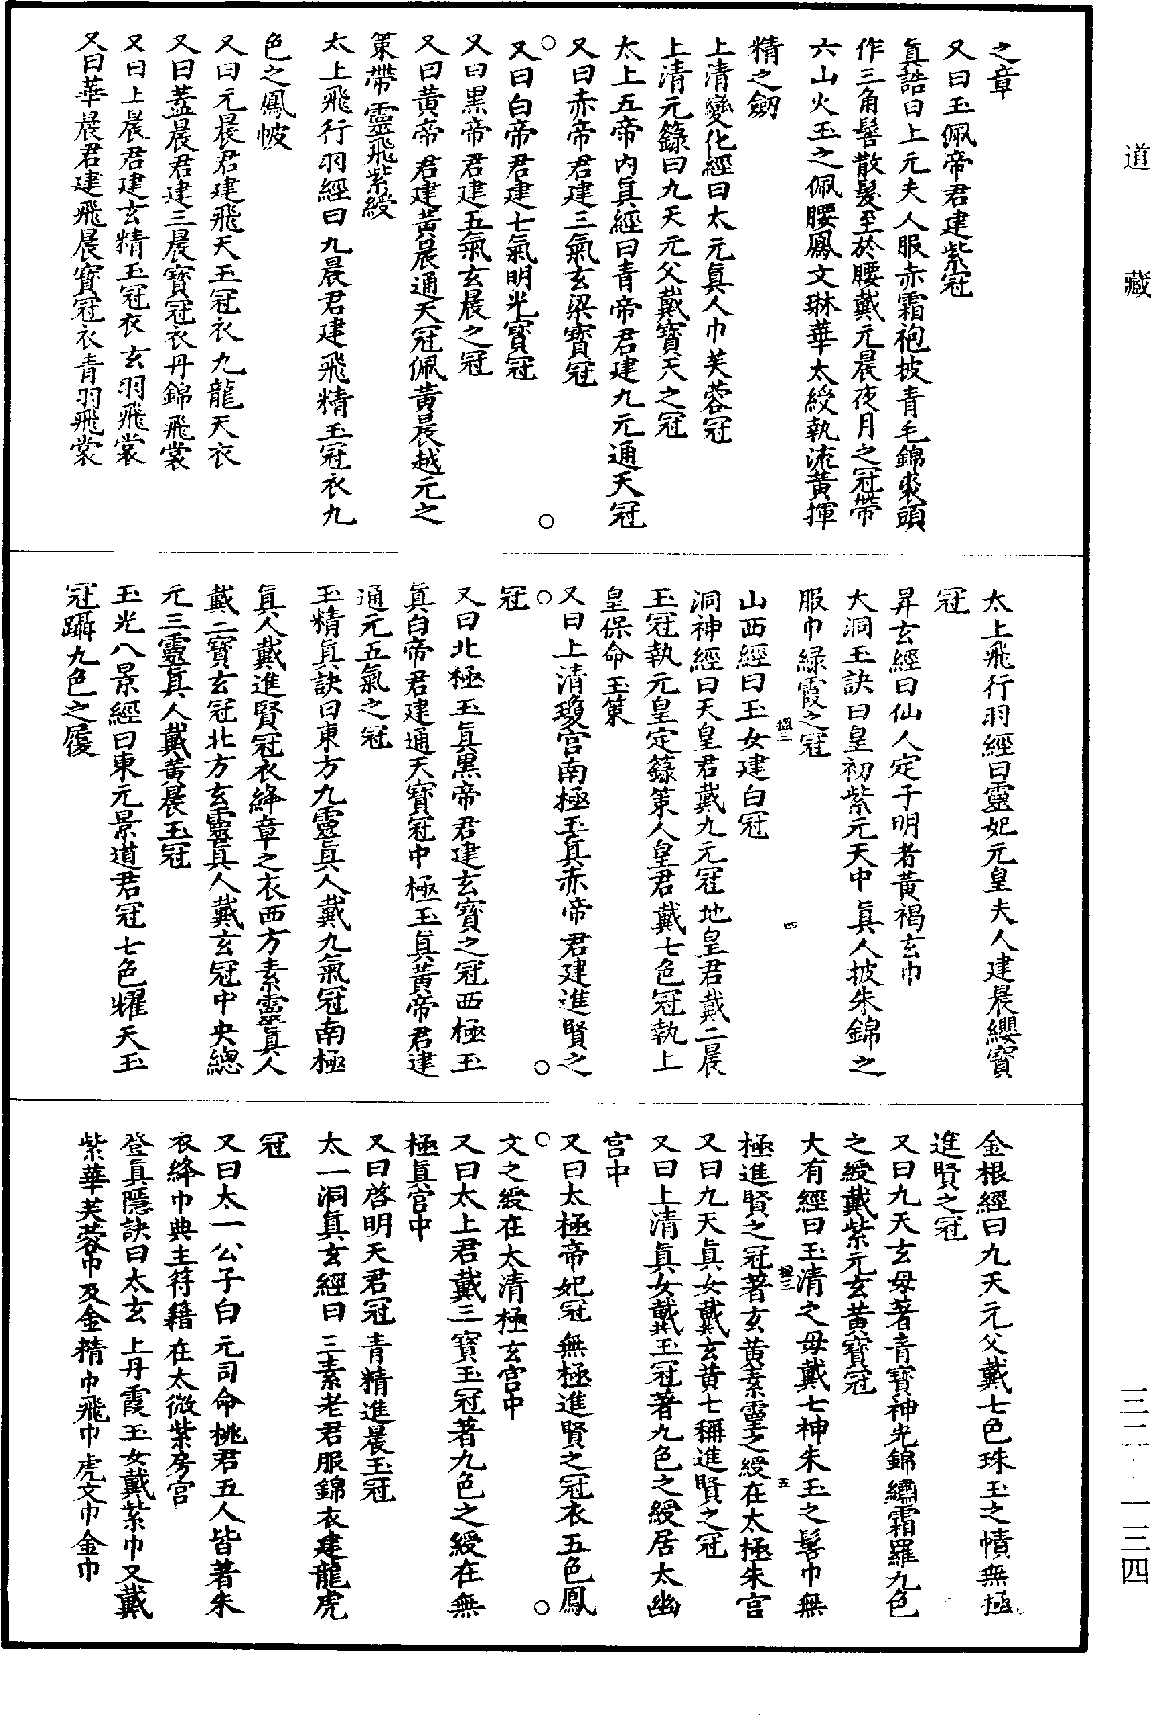 道藏
之章
又曰玉佩帝君建紫冠
眞誥曰上元夫人服赤霜袍披青毛錦裘頭
作三角髻散髮至於腰戴元晨夜月之冠帶
六山火玉之佩腰鳳文琳華太綬執流黃揮
精之劒
上清變化經曰太元眞人巾芙蓉冠
上清元籙曰九天元父戴寶天之冠
太上五帝內眞經曰青帝君建九元通天冠
又曰赤帝君建三氣玄梁寶冠
又曰白帝君建七氣明光寶冠
又曰黑帝君建五氣玄晨之冠
又曰黃帝君建黃晨通天冠佩黃晨越元之
策帶靈飛紫綬
太上飛行羽經曰九晨君建飛精玉冠衣九
色之鳳帔
又曰元晨君建飛天玉冠衣九龍天衣
又曰蓋晨君建三晨寶冠衣丹錦飛裳
又曰上晨君建玄精玉冠衣玄羽飛裳
又曰華晨君建飛晨寶冠衣青羽飛裳
太上飛行羽經曰靈妃元皇夫人建晨纓寶
冠
昇玄經曰仙人定子明者黃褐玄巾
大洞玉訣曰皇初紫元天中眞人披朱錦之
服巾緑霞之冠
山西經曰玉女建白冠
四
洞神經曰天皇君戴九元冠地皇君戴二晨
玉冠執元皇定籙策人皇君戴七色冠執上
皇保命玉策
又曰上清瓊宮南極玉眞赤帝君建進賢之
冠
又曰北極玉眞黑帝君建玄寶之冠西極玉
眞白帝君建通天寶冠中極玉眞黃帝君建
通元五氣之冠
玉精眞訣曰東方九靈眞人戴九氣冠南極
眞人戴進賢冠衣絳章之衣西方素靈眞人
戴二寶玄冠北方玄靈眞人戴玄冠中央總
元三靈眞人戴黃晨玉冠
玉光八景經曰東元景道君冠七色耀天玉
冠躡九色之履
金根經曰九天元父戴七色珠玉之幘無極
進賢之冠
又曰九天玄母著青寶神光錦繡霜羅九色
之綬戴紫元玄黃寶冠
大有經曰玉清之母戴七神朱玉之髻巾無
五
極進賢之冠著玄黃素靈之綬在太極朱宮
又曰九天眞女戴玄黃七稱進賢之冠
又曰上清眞女戴玉冠著九色之綬居太幽
宮中
又曰太極帝妃冠無極進賢之冠衣五色鳳
文之綬在太清極玄宮中
又曰太上君戴三寶玉冠著九色之綬在無
極眞宮中
又曰啓明天君冠青精進晨玉冠
太一洞眞玄經曰三素老君服錦衣建龍虎
冠
又曰太一公子白元司命桃君五人皆著朱
衣絳巾典主符籍在太微紫房宮
登眞隱訣曰太玄上丹霞玉女戴紫巾又戴
紫華芙蓉巾及金精巾飛巾虎文巾金巾
三二·一三四